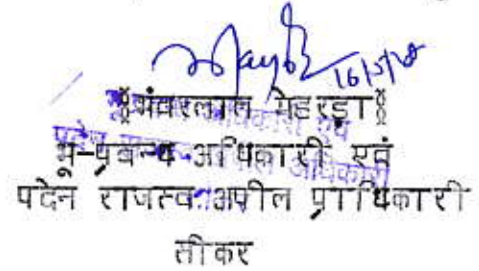 16/5/18
(भंवरलाल मेहरड़ा)
भू-प्रबन्ध अधिकारी एवं
पदेन राजस्व अपील प्राधिकारी
सीकर